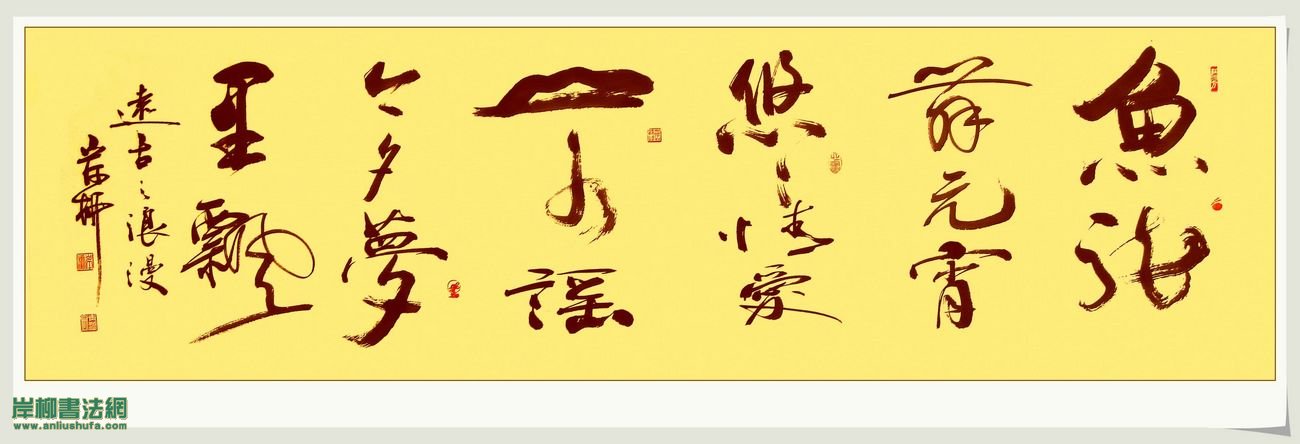 魚龍
舞元宵
悠々情愛
一首謠
今夕夢
里飄
遠古之浪漫
岸柳
岸柳書法網
www.anliushufa.com